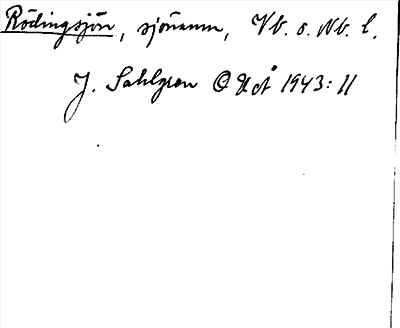 Rödingsjön, sjönamn, Vb. o. Nb. l.
J. Sahlgren @ NoB 1943: 11